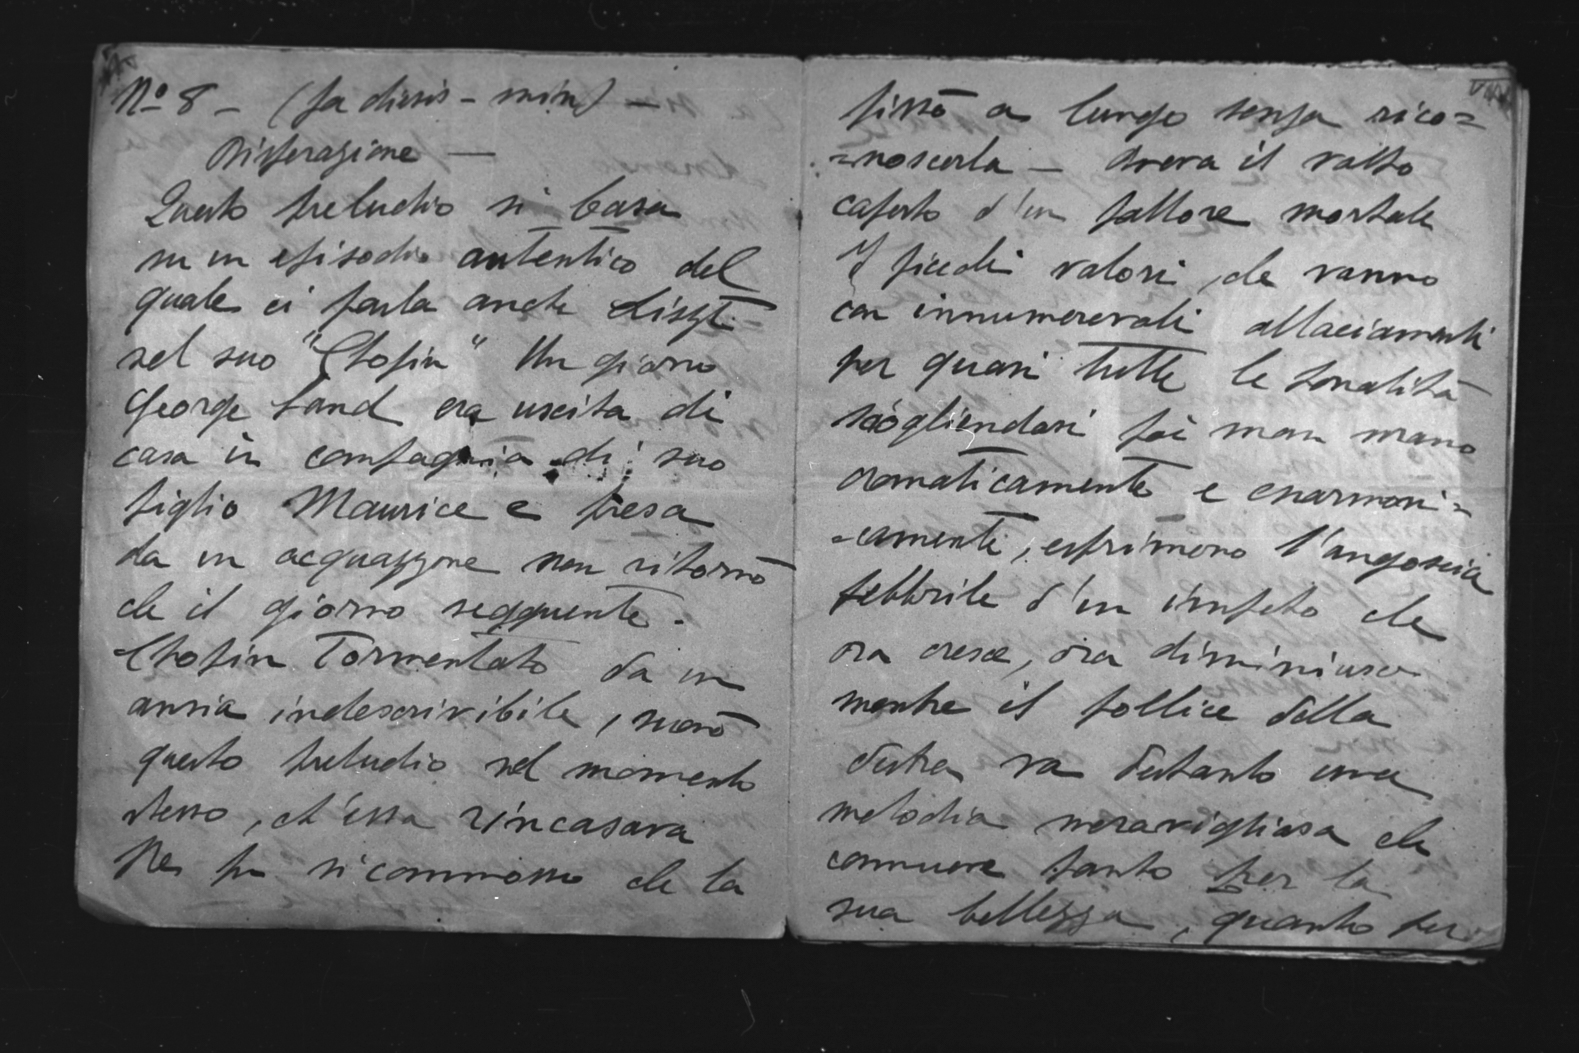 No 8 - (fa diesis - min) -
Disperazione -
Questo preludio si basa
su un episodio autentico del
quale ci parla anche Liszt
nel suo "Chopin" Un giorno
George Sand era uscita di
casa in compagnia di suo
figlio Maurice e presa
da un acquazzone non ritornò
che il giorno segguente.
Chopin tormentato da un
ansia indescrivibile, suonò
questo preludio nel momento
stesso, ch'essa rincasava
Ne fu si commosso che la
fissò a lungo senza rico=
=noscerla - Aveva il volto
coperto d'un pallore mortale
I piccoli valori, che vanno
con innumerevoli allacciamenti
per quasi tutte le tonalità
sciogliendosi poi man mano
cromaticamente e enarmoni=
=camente, esprimono l'angoscia
febbrile d'un impeto che
ora cresce, ora diminuisce
mentre il pollice della
destra va dettando una
melodia meravigliosa che
commuove tanto per la
sua bellezza, quanto per